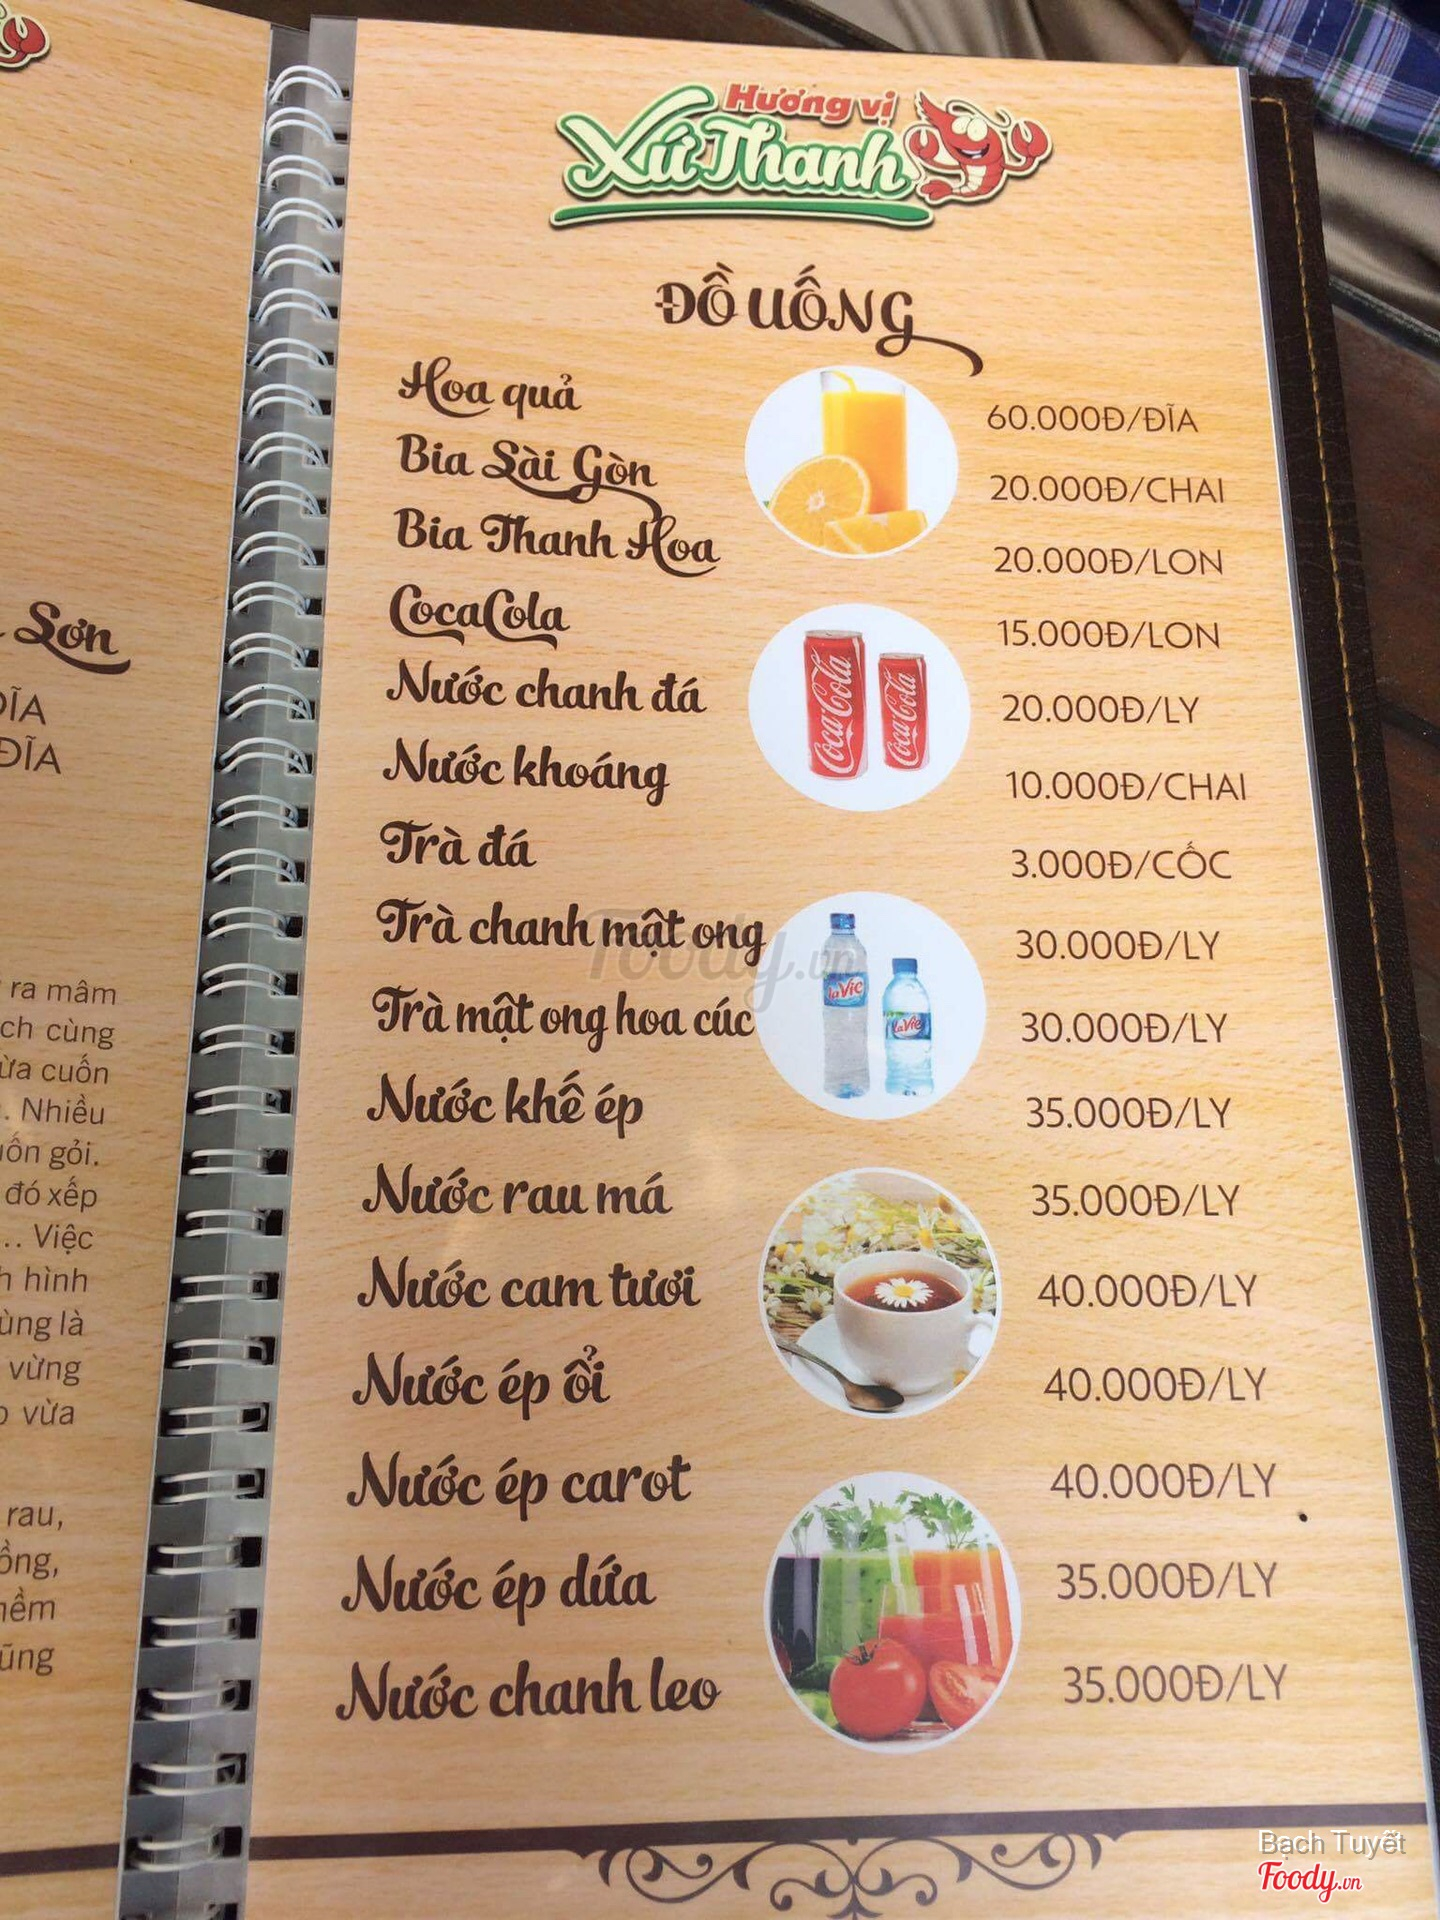 Hương vị
Xứ Thanh
ĐỒ UỐNG
Hoa quả 60.000Đ/ĐĨA
Bia Sài Gòn 20.000Đ/CHAI
Bia Thanh Hoa 20.000Đ/LON
CocaCola 15.000Đ/LON
Nước chanh đá 20.000Đ/LY
Nước khoáng 10.000Đ/CHAI
Trà đá 3.000Đ/CỐC
Trà chanh mật ong 30.000Đ/LY
Trà mật ong hoa cúc 30.000Đ/LY
Nước khế ép 35.000Đ/LY
Nước rau má 35.000Đ/LY
Nước cam tươi 40.000Đ/LY
Nước ép ổi 40.000Đ/LY
Nước ép carot 40.000Đ/LY
Nước ép dứa 35.000Đ/LY
Nước chanh leo 35.000Đ/LY
Coca-Cola
Coca-Cola
LaVie
LaVie
Foody.vn
Sơn
ĐĨA
ĐĨA
ra mâm
cùng
cuốn
. Nhiều
gỏi.
đó xếp
... Việc
hình
là
vừng
vừa
rau,
Bạch Tuyết
Foody.vn